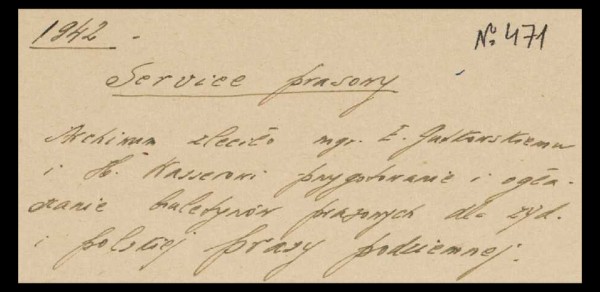 1942 -
№ 471
Service prasowy
Archiwum zleciło mgr. E. Gutkowskiemu
i H. Wasserowi przygotowanie i ogła-
szanie biuletynów prasowych dla żyd.
i polskiej prasy podziemnej.